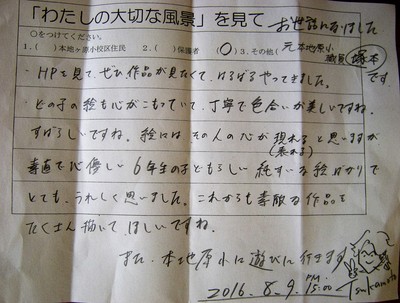 「わたしの大切な風景」を見て お世話になりました
○をつけてください。
1.( )本地ヶ原小校区住民 2.( )保護者 (○)3.その他(元本地原小
職員 塚本)です
・HPを見て、ぜひ作品が見たくて、はるばるやってきました。
・どの子の絵も心がこもっていて、丁寧で色合いが美しいですね。
すばらしいですね。絵には、その人の心が現れると思いますが
(表れる)
素直で心優しい6年生の子どもらしい純すいな絵ばかりで
とても、うれしく思いました。これからも素敵な作品を
たくさん描いてほしいですね。
また、本地原小に遊びに行きます
2016.8.9. PM 15:00
Tsukamoto